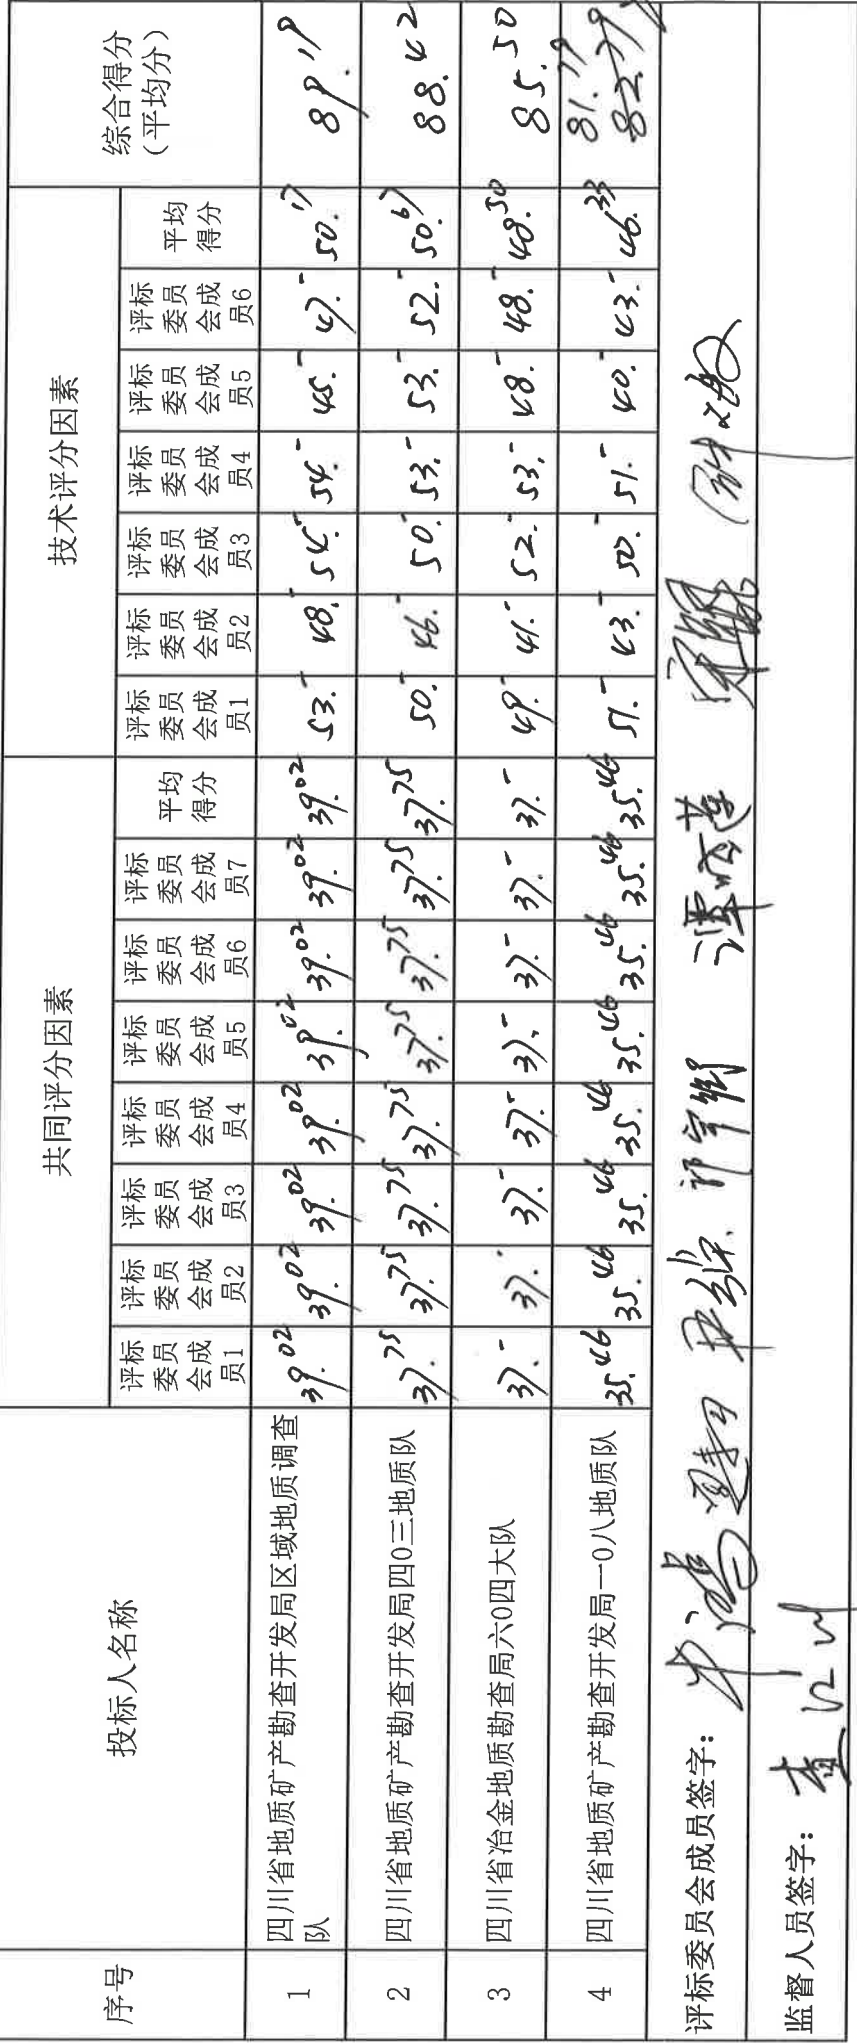 序号 投标人名称 共同评分因素 技术评分因素 综合得分（平均分）
评标委员会成员1 评标委员会成员2 评标委员会成员3 评标委员会成员4 评标委员会成员5 评标委员会成员6 评标委员会成员7 平均得分 评标委员会成员1 评标委员会成员2 评标委员会成员3 评标委员会成员4 评标委员会成员5 评标委员会成员6 平均得分
1 四川省地质矿产勘查开发局区域地质调查队 39.02 39.02 39.02 39.02 39.02 39.02 39.02 39.02 53.- 48.- 54.- 54.- 45.- 47.- 50.17 89.19
2 四川省地质矿产勘查开发局四0三地质队 37.75 37.75 37.75 37.75 37.75 37.75 37.75 37.75 50.- 46.- 50.- 53.- 53.- 52.- 50.67 88.42
3 四川省冶金地质勘查局六0四大队 37.- 37.- 37.- 37.- 37.- 37.- 37.- 37.- 49.- 41.- 52.- 53.- 48.- 48.- 48.50 85.50
4 四川省地质矿产勘查开发局一0八地质队 35.46 35.46 35.46 35.46 35.46 35.46 35.46 35.46 51.- 43.- 50.- 51.- 40.- 43.- 46.33 81.79 82.79
评标委员会成员签字：
监督人员签字：